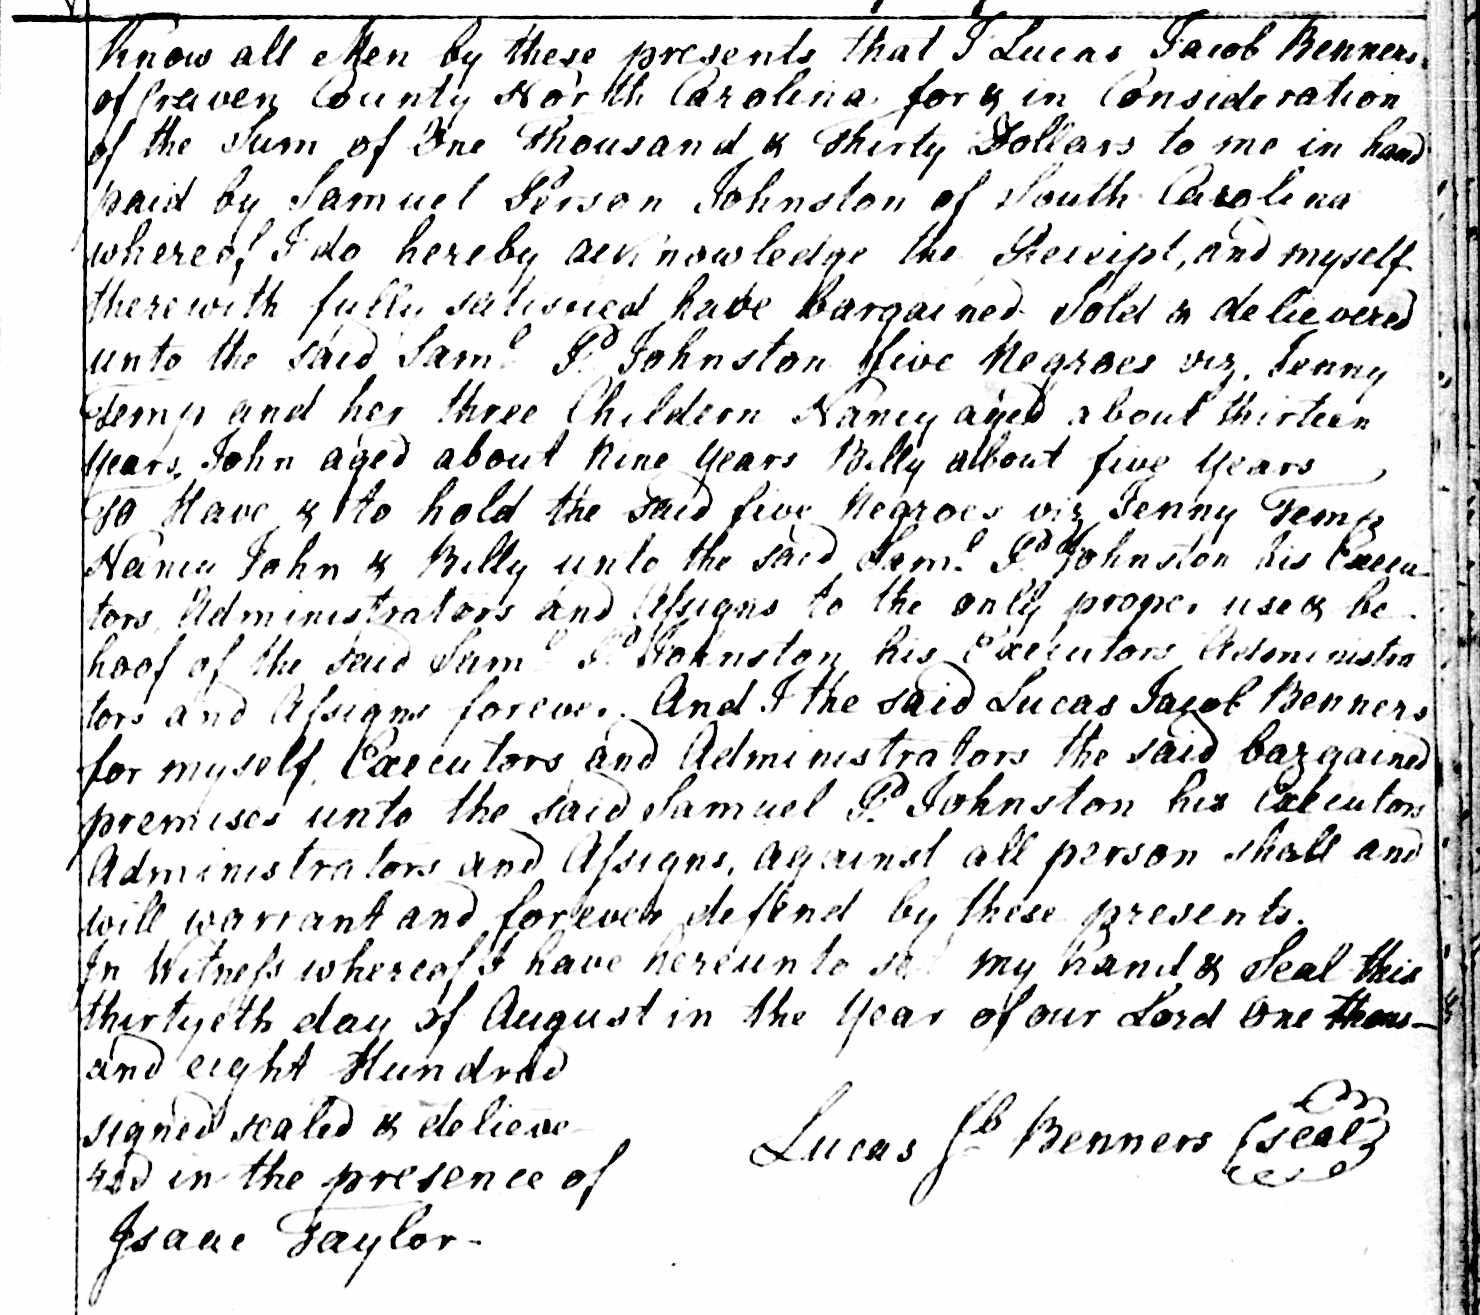 Know all Men by these presents that I Lucas Jacob Benners
of Craven County North Carolina for & in Consideration
of the Sum of One Thousand & Thirty Dollars to me in hand
paid by Samuel Person Johnston of South Carolina
whereof I do hereby acknowledge the Receipt, and myself
therewith fully satisfied have bargained Sold & delievered
unto the said Saml Pd Johnston five Negroes viz. Jenny
Temp and her three Childern Nancy aged about thirteen
years, John aged about Nine years Billy about five years
To Have & to hold the said five Negroes viz Jenny Temp
Nancy John & Billy unto the said Saml Pd Johnston his Execu-
tors Administrators and Assigns to the only proper use & be-
hoof of the said Saml Pd Johnston his Executors Administra
tors and Assigns forever. And I the said Lucas Jacob Benners
for myself, Executors and Administrators the said bargained
premises unto the said Samuel Pd Johnston his Executors
Administrators and Assigns, against all person shall and
will warrant and forever defend by these presents.
In Witness whereof I have hereunto set my hand & Seal this
thirtyeth day of August in the year of our Lord One thous-
and eight Hundred
signed sealed & delieve
red in the presence of
Lucas Jb Benners (seal)
Isaac Taylor-